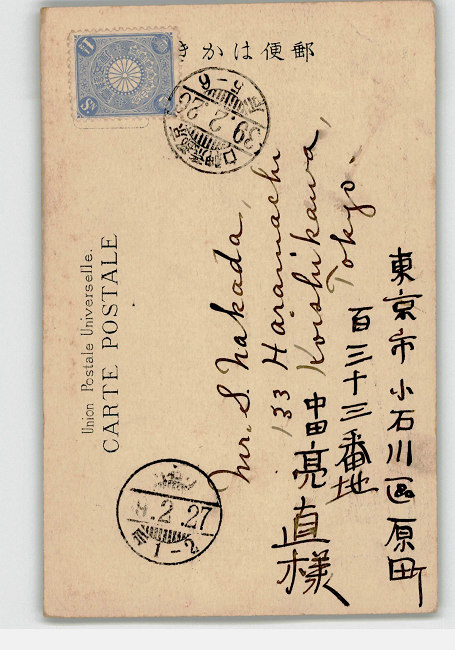 郵便はかき
Union Postale Universelle.
CARTE POSTALE
39.2.26
5-6
Mr. S. Nakada,
133 Haramachi
Koishikawa,
Tokyo.
東京市小石川區原町
百三十三番地
中田亮直様
2.27
1-2